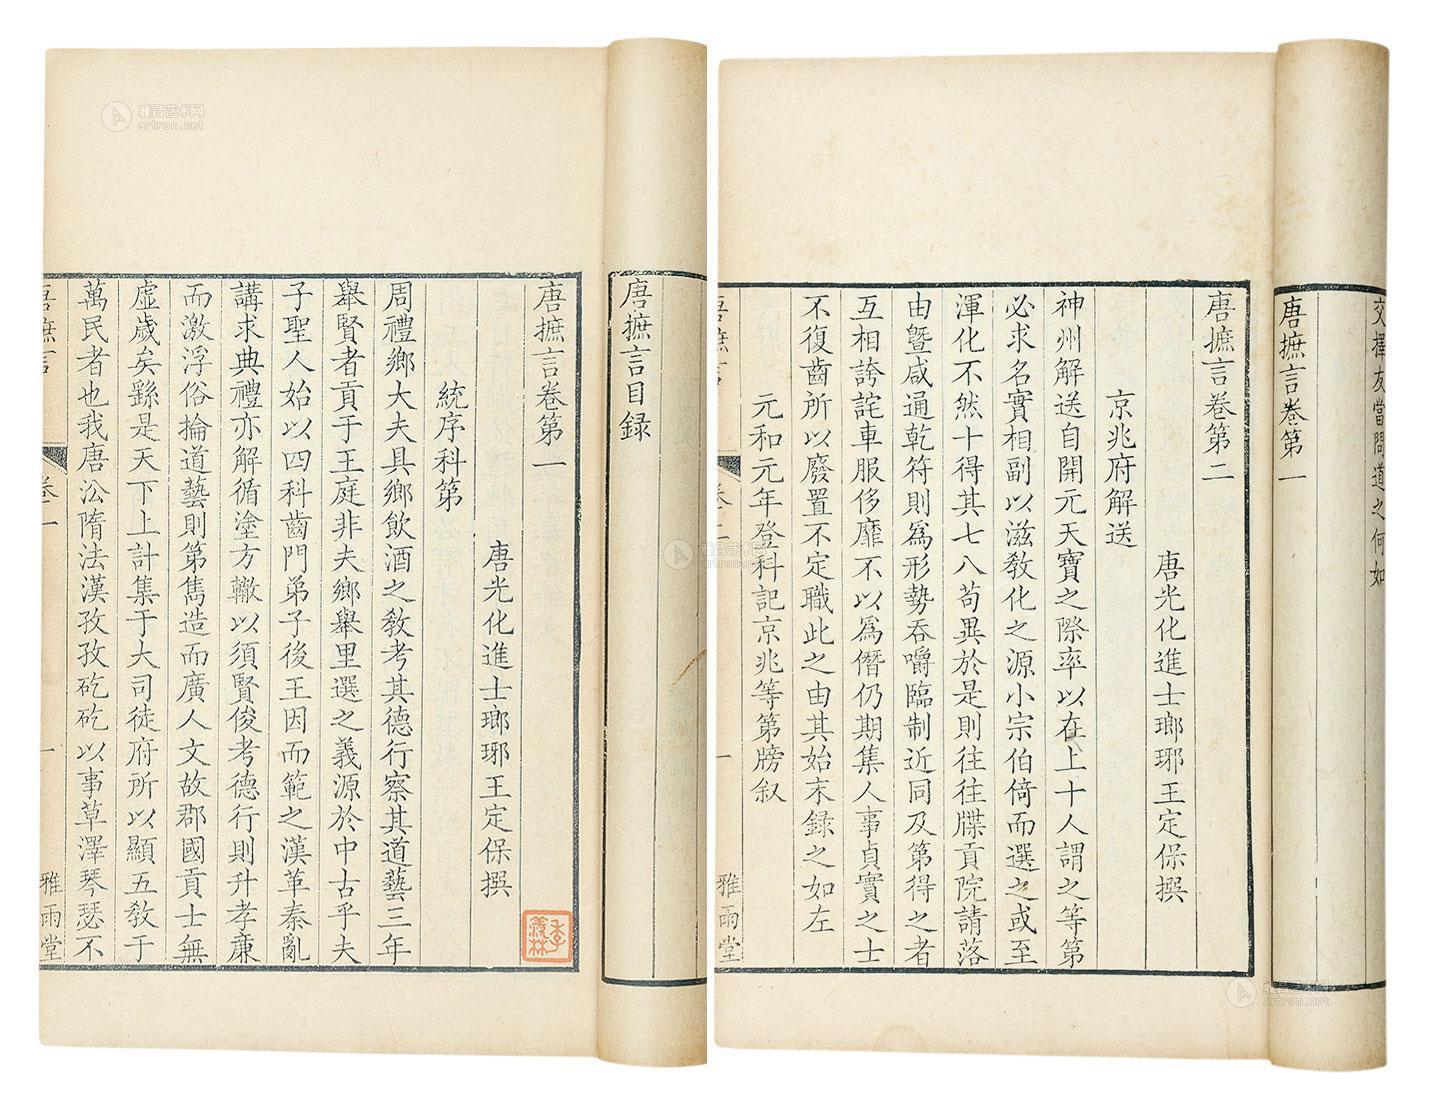 唐摭言目録
唐摭言卷第一
唐光化進士瑯琊王定保撰
統序科第
周禮鄉大夫具鄉飲酒之敎考其德行察其道藝三年
舉賢者貢于王庭非夫鄉舉里選之義源於中古乎夫
子聖人始以四科齒門弟子後王因而範之漢革秦亂
講求典禮亦解循塗方轍以須賢俊考德行則升孝亷
而激浮俗掄道藝則第雋造而廣人文故郡國貢士無
虛歲矣繇是天下上計集于大司徒府所以顯五敎于
萬民者也我唐㳂隋法漢孜孜矻矻以事草澤琴瑟不
唐摭言 卷一 一 雅雨堂
交擇友當問道之何如
唐摭言卷第一
唐摭言卷第二
唐光化進士瑯琊王定保撰
京兆府解送
神州解送自開元天寶之際率以在上十人謂之等第
必求名實相副以滋敎化之源小宗伯倚而選之或至
渾化不然十得其七八苟異於是則往往牒貢院請落
由曁咸通乾符則爲形勢吞嚼臨制近同及第得之者
互相誇詫車服侈靡不以爲僭仍期集人事貞實之士
不復齒所以廢置不定職此之由其始末録之如左
元和元年登科記京兆等第牓叙
唐摭言 卷二 一 雅雨堂
雅昌艺术网
artron.net